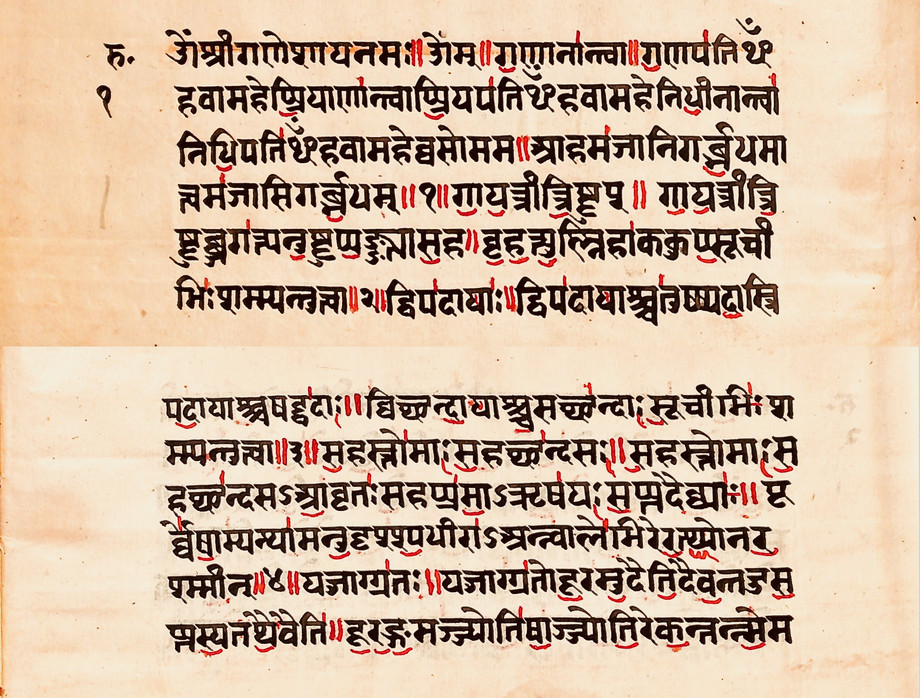 रु. ॐश्रीगणेशायनमः॥ॐम्॥गणानान्त्वा॥गणपतिᳪ
१ हवामहेप्प्रियाणान्त्वाप्प्रियपतिᳪहवामहेनिधीनान्त्वा
निधिपतिᳪहवामहेव्वसोमम॥आहमजानिगर्ब्भधमा
त्त्वमजासिगर्ब्भधम्॥१॥गायत्रीत्रिष्टुप्॥गायत्रीत्रि
ष्टुब्जगत्यनुष्टुप्पङ्क्त्यासह॥बृहत्युष्णिहाककुप्सूची
भिःशम्म्यन्तुत्त्वा॥२॥द्विपदायाः॥द्विपदायाश्चतुष्पदास्त्रि
पदायाश्चषट्पदाः॥विच्छन्दायाश्चसच्छन्दाःसूचीभिःश
म्म्यन्तुत्त्वा॥३॥सहस्तोमाःसहच्छन्दसः॥सहस्तोमाःस
हच्छन्दसऽआवृतःसहप्प्रमाऽऋषयःसप्तदैव्याः॥पू
र्व्वेषाम्पन्थामनुदृश्श्यधीराऽअन्न्वालेभिरेरत्थ्योनर
श्म्मीन्॥४॥यजाग्ग्रतः॥यजाग्ग्रतोदूरमुदैतिदैवन्तदुसु
प्तस्यतथैवैति॥दूरङ्गमज्ज्योतिषाज्ज्योतिरेकन्तन्न्मेम